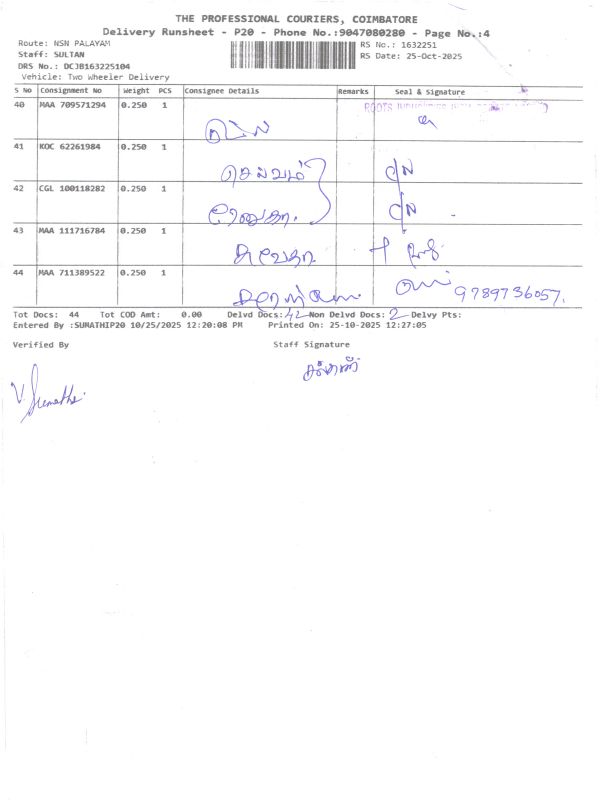 THE PROFESSIONAL COURIERS, COIMBATORE
Delivery Runsheet - P20 - Phone No.:9047080280 - Page No.:4
Route: NSN PALAYAM
Staff: SULTAN
DRS No.: DCJB163225104
Vehicle: Two Wheeler Delivery
RS No.: 1632251
RS Date: 25-Oct-2025
S No Consignment No Weight PCS Consignee Details Remarks Seal & Signature
40 MAA 709571294 0.250 1
41 KOC 62261984 0.250 1
செல்வம்
42 CGL 100118282 0.250 1
43 MAA 111716784 0.250 1
44 MAA 711389522 0.250 1
9789736057.
Tot Docs: 44 Tot COD Amt: 0.00 Delvd Docs: 42 Non Delvd Docs: 2 Delvy Pts:
Entered By :SUMATHIP20 10/25/2025 12:20:08 PM Printed On: 25-10-2025 12:27:05
Verified By Staff Signature
V. Sumathi